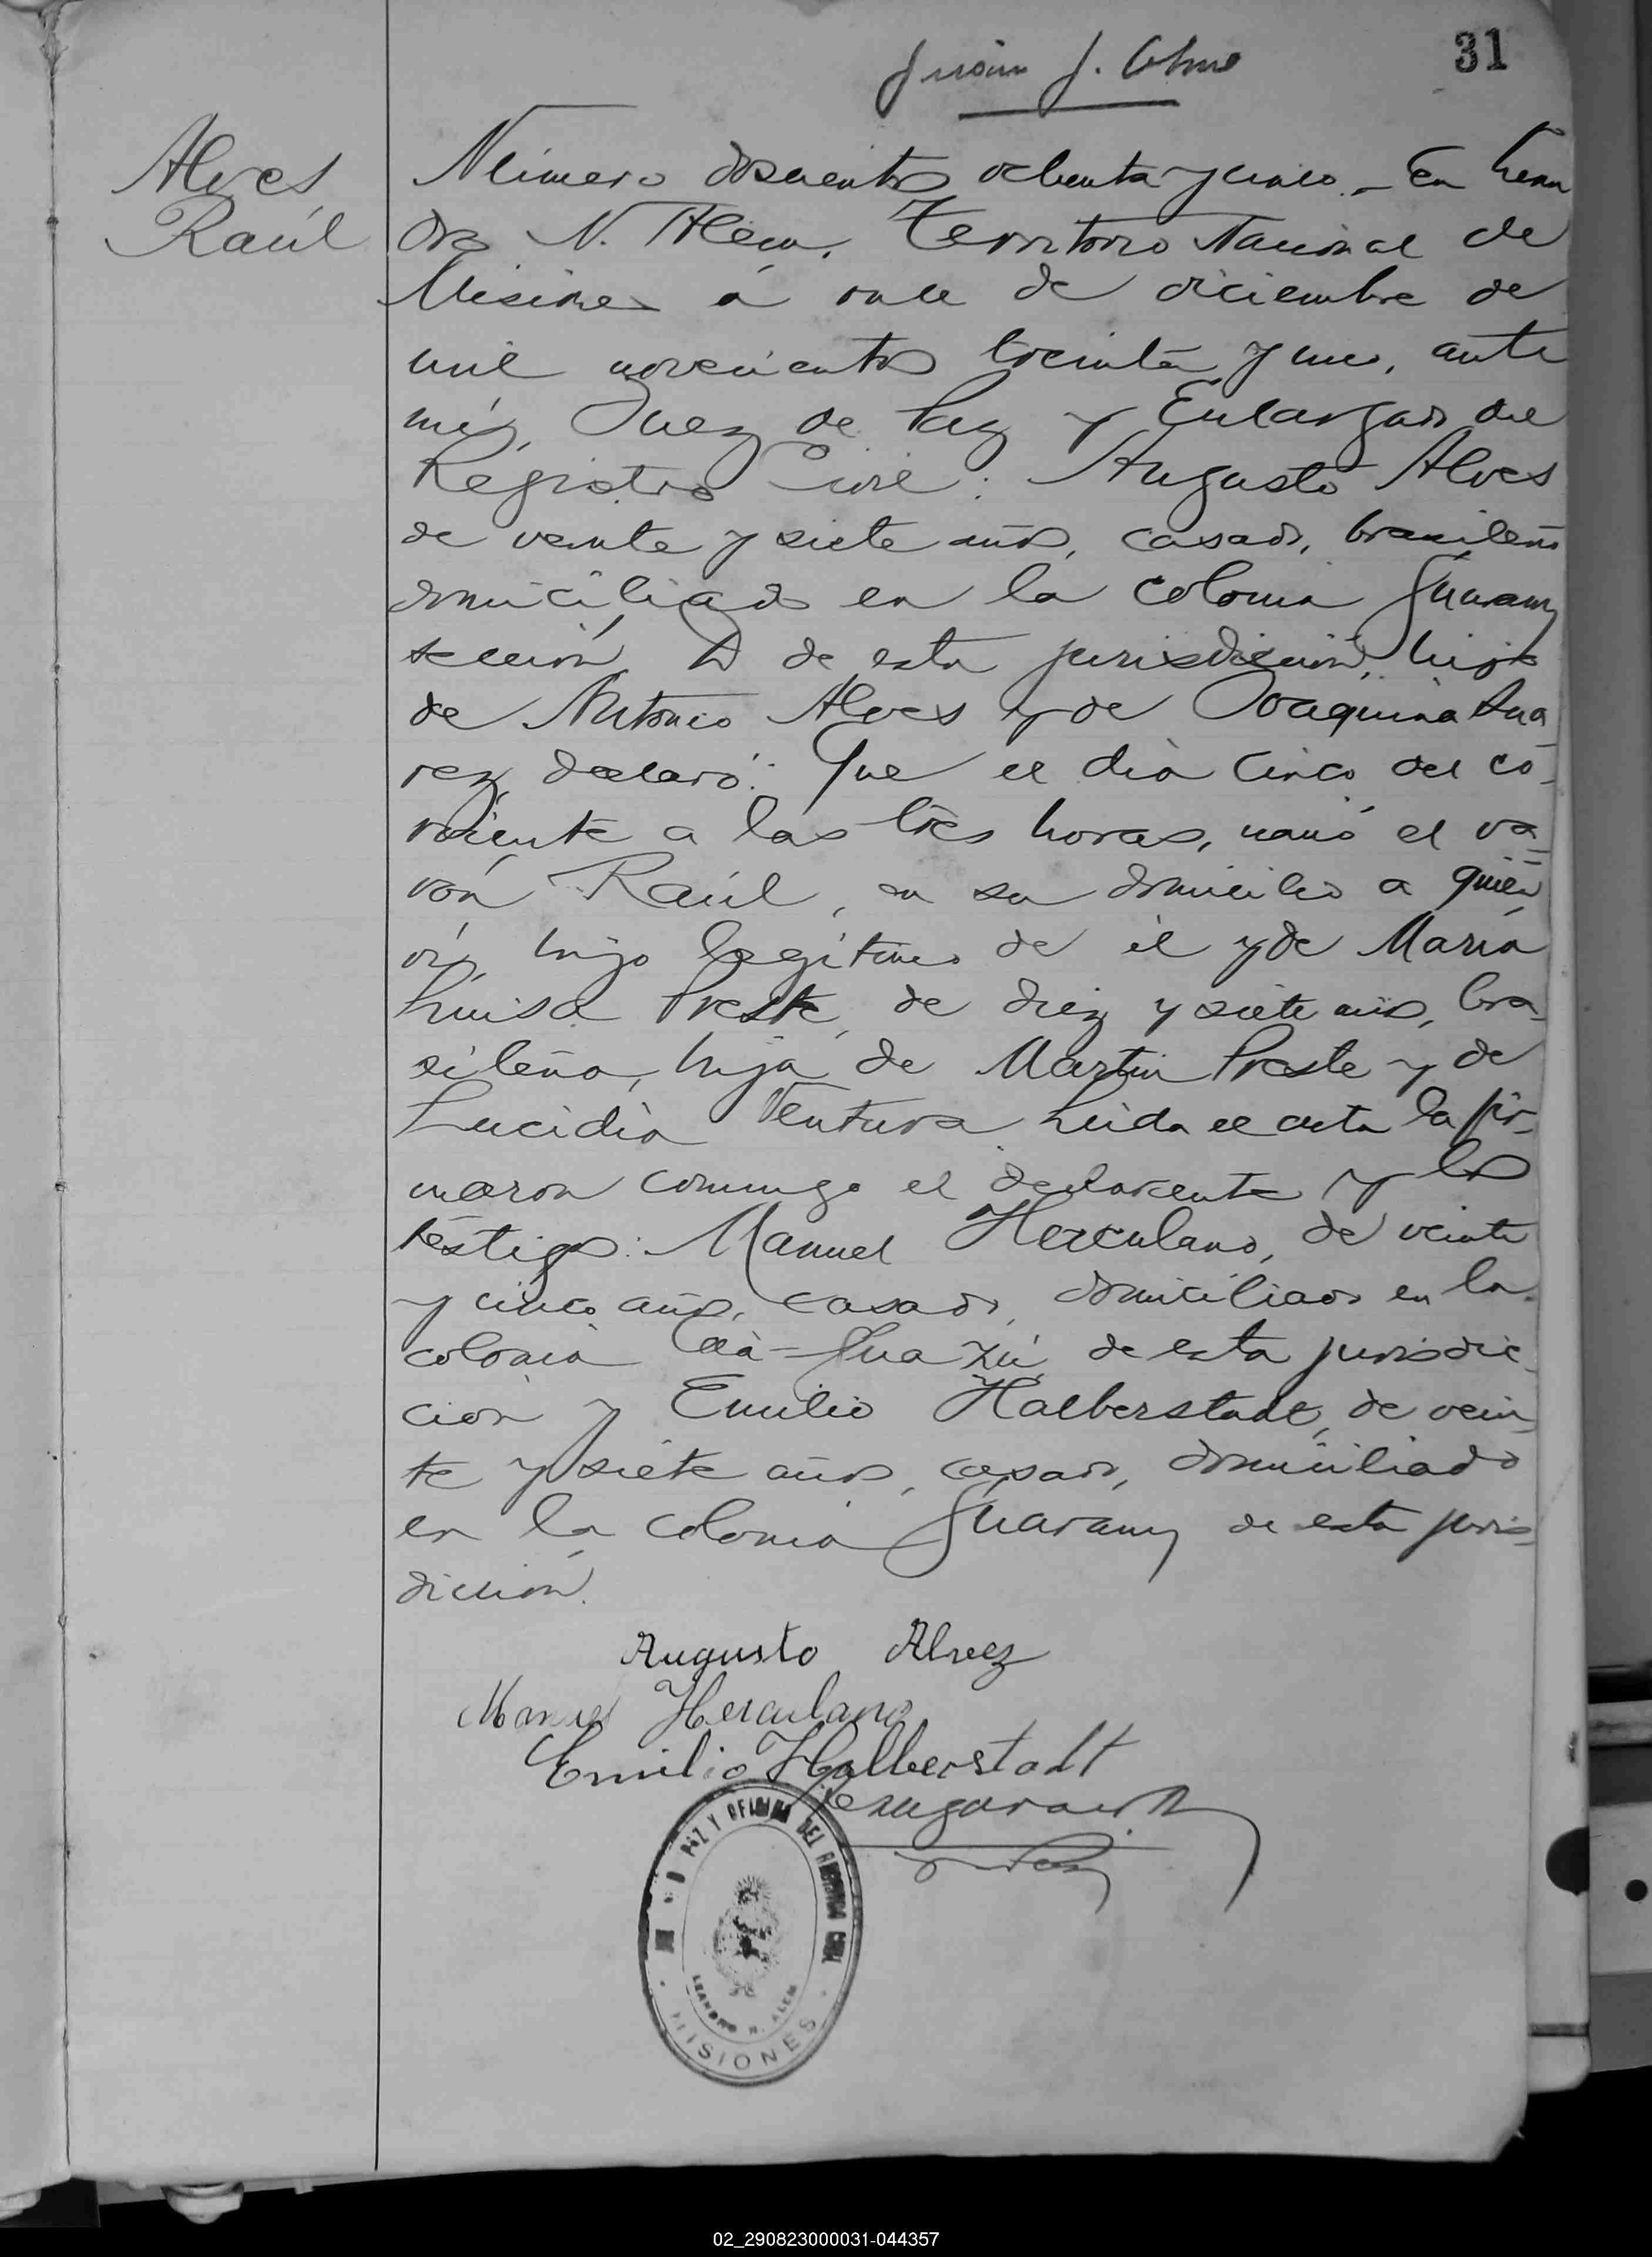 31
Alves
Raúl
Número doscientos ochenta y cinco.- En Lean
dro N. Alem, Territorio Nacional de
Misiones á once de diciembre de
mil novecientos treinta y uno, ante
mí, Juez de Paz y Encargado del
Registro Civil: Augusto Alves
de veinte y siete años, casado, brasileño
domiciliado en la colonia Guarany
sección D de esta jurisdicción, hijo
de Antonio Alves y de Joaquina Sua
rez, declaró: Que el día cinco del co-
rriente a las tres horas, nació el va-
rón Raúl, en su domicilio a quien
ví, hijo legítimo de él y de María
Luisa Preste, de diez y siete años, bra-
sileña, hija de Martin Preste y de
Lucidia Ventura. Leida el acta la fir-
maron conmigo el declarante y los
testigos: Manuel Herculano, de veinte
y cinco años, casado, domiciliado en la
colonia Caá-Guazú, de esta jurisdic-
ción y Emilio Halberstadt, de vein-
te y siete años, casado, domiciliado
en la colonia Guarany de esta juris-
dicción.
Augusto Alvez
Manuel Herculano
Emilio Halberstadt
PAZ Y OFICINA DEL REGISTRO CIVIL
LEANDRO N. ALEM
MISIONES
02_290823000031-044357